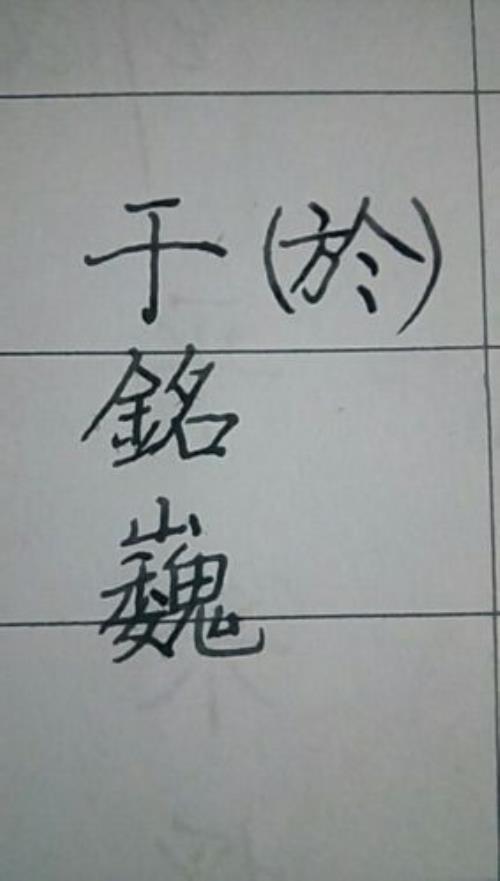 于(於)
銘
巍